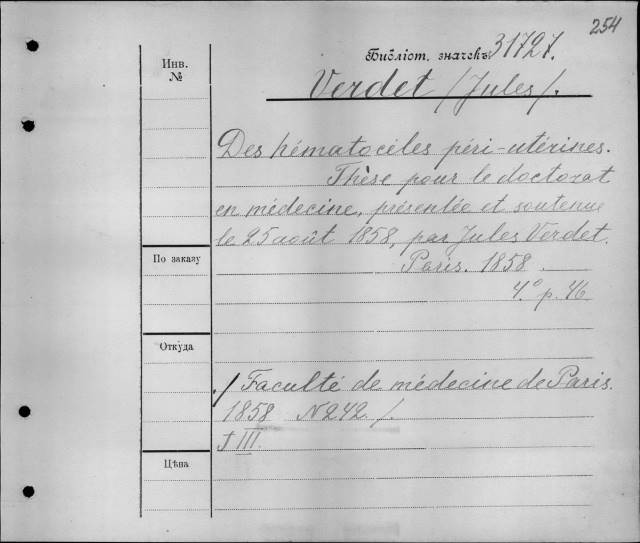 254
Библіот. значекъ 31727.
Инв.
№
Verdet /Jules/.
Des hématocèles péri-utérines.
Thèse pour le doctorat
en médecine, présentée et soutenue
le 25 août 1858, par Jules Verdet.
По заказу
Paris. 1858
4° p. 46
Откуда
/ Faculté de médecine de Paris.
1858 N 242 /.
III.
Цѣна